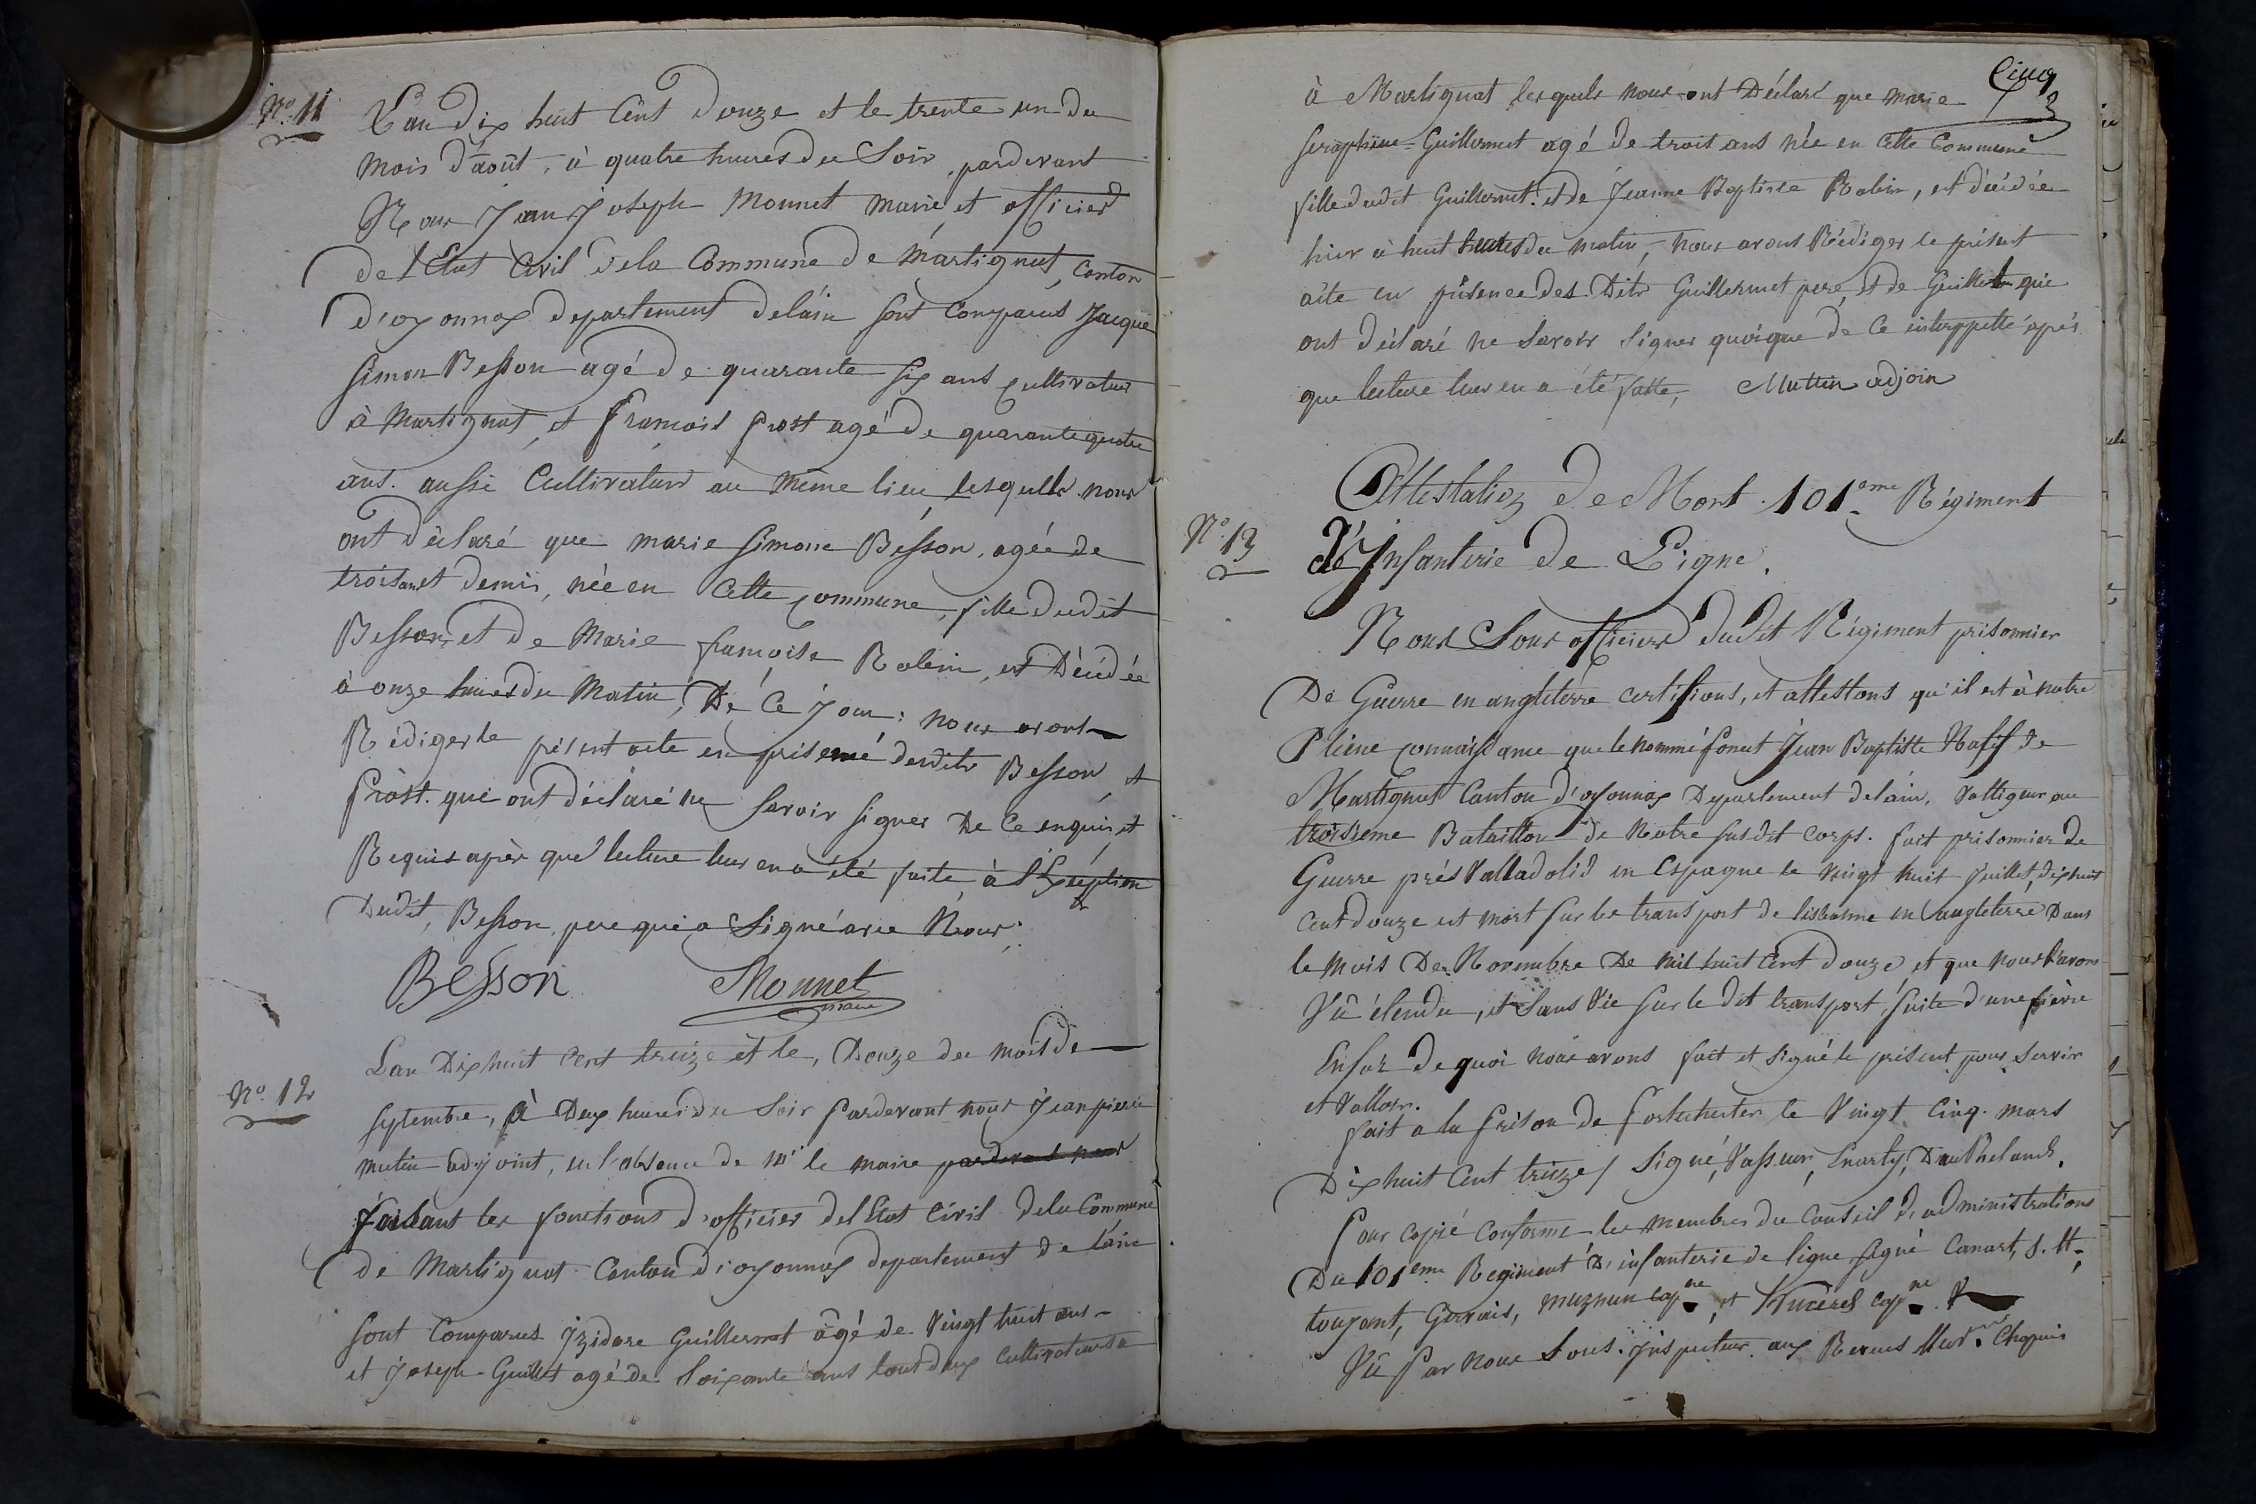 N.° 11
L'an dix huit Cent douze et le trente un du
mois d'août, à quatre heures du Soir, pardevant
Nous Jean Joseph Monnet Maire et officier
de l'Etat Civil dela Commune de Martignat, Canton
d'oyonnax departement delain sont comparus Jacque
Simon Besson agé de quarante Six ans Cultivateur
à Martignat, et francois Prost agé de quarante quatre
ans. aussi Cultivateur au même lieu lesquels nous
ont déclaré que marie Simone Besson, agée de
trois ans et demis, née en Cette Commune, fille dudit
Besson et de Marie francoise Robin, est Décédée
à onze heures du Matin, De Ce Jour; nous avons
Rédiger le présent acte en présence desdits Besson, et
Prost. qui ont déclaré ne Savoir Signer De Ce enquis, et
Requis après que lecture leur en a été faite, à l'Exséption
Dudit, Besson, pere qui a Signé avec Nous;
Besson Monnet
maire
N.° 12
Lan Dixhuit Cent treize et le, Douze du mois de
Septembre, à Deux heures du Soir Pardevant nous Jean pierre
mutin adjoint, en l'absence de Mr le maire pardevant nous
faisant les fonctions d'officier del'Etat Civil dela Commune
de Martignat Canton d'oyonnax departement de l'ain
Sont Comparus Izidore Guillermet âgé de Vingt huit ans
et Joseph Guillet agé de Soixante ans tout deux Cultivateurs
Cinq
à Martignat lesquels nous ont Déclaré que marie
Seraphine Guillermet agé de trois ans née en Cette Commune
fille dudit Guillermet. et de Jeanne Baptiste Robin, est décédée
hier à huit heures du matin, nous avons Rédiger le présent
acte en présence des Dits Guillermet pere, et de Guillet qui
ont déclaré ne Savoir Signer quoique de Ce interppellé aprés
que lecture leur en a été faite, Muttin adjoin
N.° 13
Attestation de Mort. 101eme Régiment
d'Infanterie de Ligne.
Nous Sous officiers dudit Régiment prisonnier
De Guerre en angleterre certifions, et attestons qu'il est à notre
Pleine connaissance que le nommé Jean Baptiste Natif de
Martignat Canton d'oyonnax Departement delain, Voltigeur au
troisieme Bataillon de Notre susdit Corps. fait prisonnier de
Guerre prés Valladolid en Espagne le Vingt huit Juillet, dixhuit
Cent douze est mort sur les transport de lisbonne en angleterre Dans
le mois De Novembre De mil huit Cent douze et que nous l'avons
Vû étendu, et Sans Vie Sur le dit transport, Suite d'une fièvre
Enfoi de quoi nous avons fait et Signé le présent pour Servir
et Valloir.
fait a la Prison de Portchester le Vingt Cinq. mars
Dixhuit Cent treize / Signé, Vasseur,
Pour copié Conforme les membres du Conseil d'administrations
Du 101eme Regiment D'infanterie de ligne Signé Canart,
Gervais, et
Vû Par nous Sous. Inspecteur aux Revues Chapuis